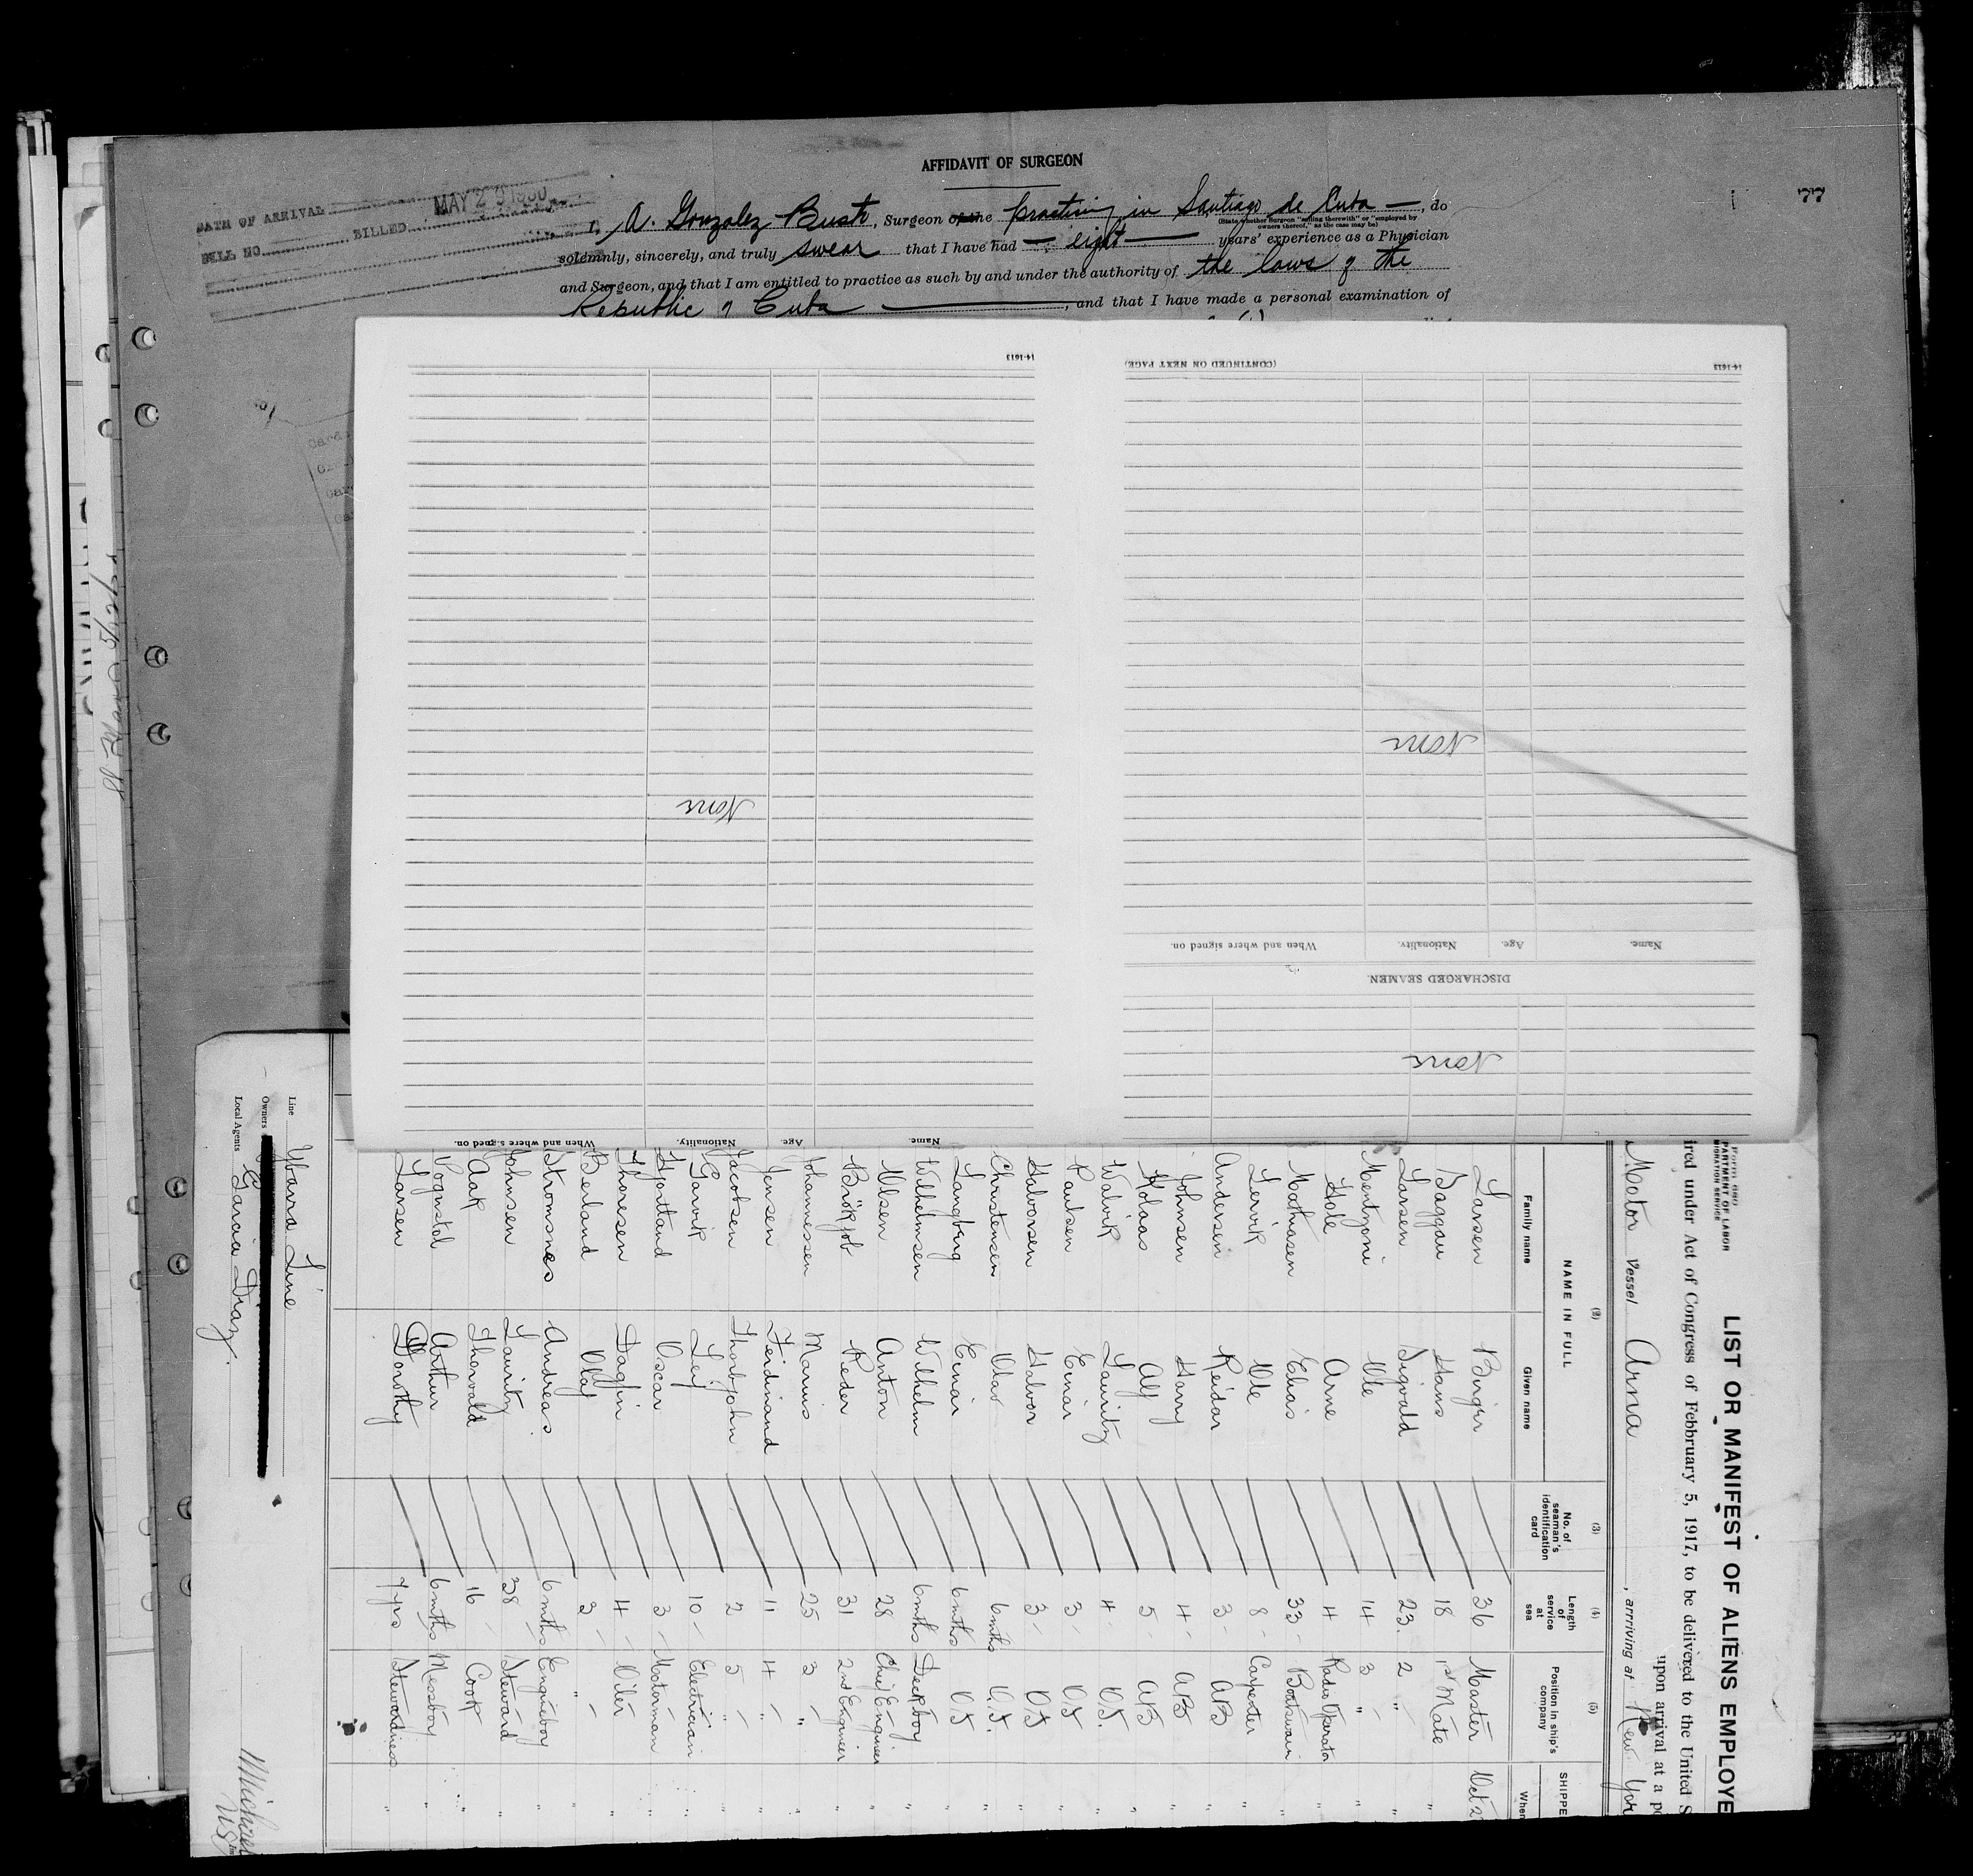 77
AFFIDAVIT OF SURGEON
DATE OF ARRIVAL MAY 29 1930
BILL NO. BILLED
I, A. Gonzalez Busto, Surgeon of the practising in Santiago de Cuba —, do
(State whether Surgeon "sailing therewith" or "employed by owners thereof," as the case may be)
solemnly, sincerely, and truly swear that I have had — eight — years' experience as a Physician
and Surgeon, and that I am entitled to practice as such by and under the authority of the laws of the
Republic of Cuba, and that I have made a personal examination of
14-1613
(CONTINUED ON NEXT PAGE)
14-1613
None
None
Name. Age. Nationality. When and where signed on.
DISCHARGED SEAMEN.
None
Name. Age. Nationality. When and where signed on.
PARTMENT OF LABOR
MIGRATION SERVICE
LIST OR MANIFEST OF ALIENS EMPLOYE
ired under Act of Congress of February 5, 1917, to be delivered to the United S
upon arrival at a po
Motor Vessel Arna, arriving at New Yor
(2) (3) (4) (5)
NAME IN FULL
Family name Given name No. of seaman's identification card Length of service at sea Position in ship's company SHIPPE When
Larsen Birger 36 Master Oct 2
Daggau Hans 18 1st Mate "
Larsen Sigvald 23 - 2 " "
Mentzoni Ole 14 - 3 " "
Hole Arne 4 Radio Operator "
Mathiasen Elias 33 - Boatswain "
Lervik Ole 8 - Carpenter "
Andersen Reidar 3 - AB "
Johnsen Harry 4 - AB "
Kolaas Alf 5 - AB "
Walvik Lauritz 4 - O.S. "
Paulsen Einar 3 - OS "
Halvorsen Halvor 3 - OS "
Christensen Olav 6 mths O.S. "
Langberg Einar 6 mths OS "
Wilhelmsen Wilhelm 6 mths Deckboy "
Olsen Anton 28 Chief Engineer "
Brökjob Peder 31 2nd Engineer "
Johannessen Marius 25 3 " "
Jensen Ferdinand 11 4 " "
Jacobsen Thorbjohn 2 5 " "
Garvik Leif 10 - Electrician "
Hjortland Oscar 3 - Motorman "
Thoresen Dagfin 4 - Oiler "
Berland Olaf 3 - " "
Stromsnes Andreas 6 mths Engineboy "
Johnsen Lauritz 38 - Steward "
Aak Thorvald 16 - Cook "
Pognstal Arthur 6 mths Messboy "
Larsen Dorothy 7 yrs Stewardness "
Line Ybarra Line
Owners
Local Agents Garcia Diaz.